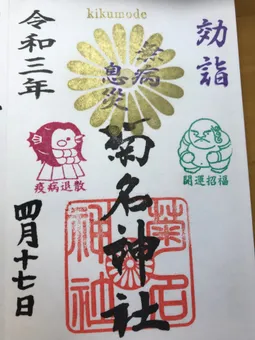 kikumode
効詣
無病
息災
令和三年
疫病退散
開運招福
菊名神社
菊名
神社
四月十七日